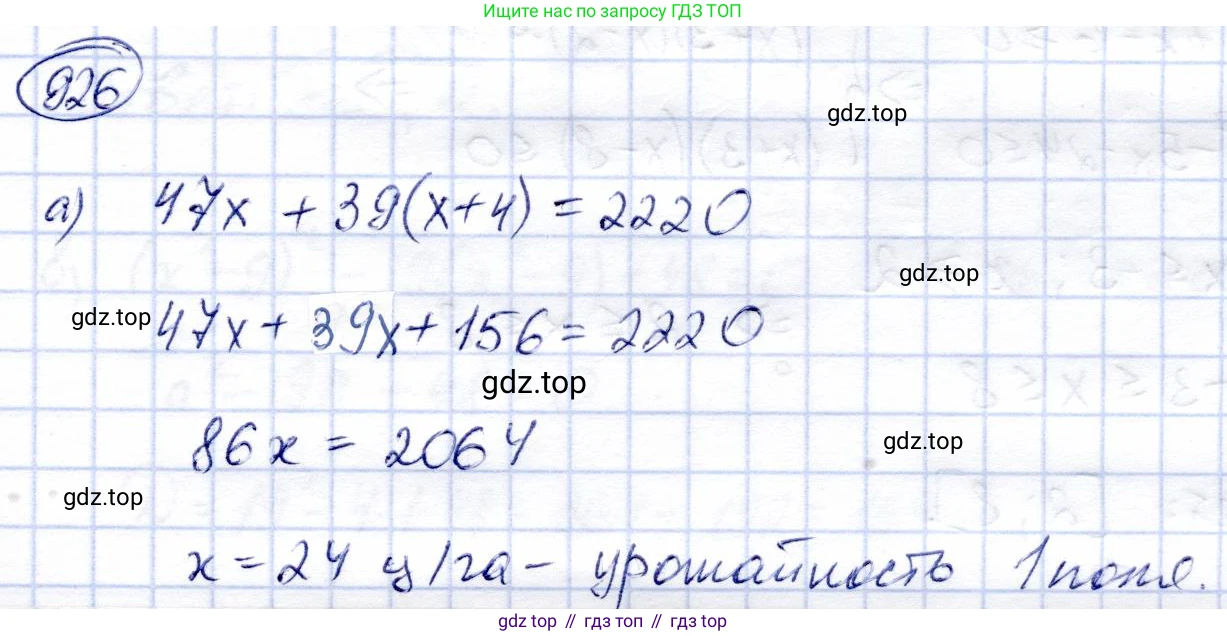 Ищите нас по запросу ГДЗ ТОП
926
gdz.top
а) 47x + 39(x+4) = 2220
gdz.top
gdz.top
47x + 39x + 156 = 2220
gdz.top
86x = 2064
gdz.top
gdz.top
x = 24 ц/га - урожайность 1 поля.
gdz.top // гдз топ // гдз.top